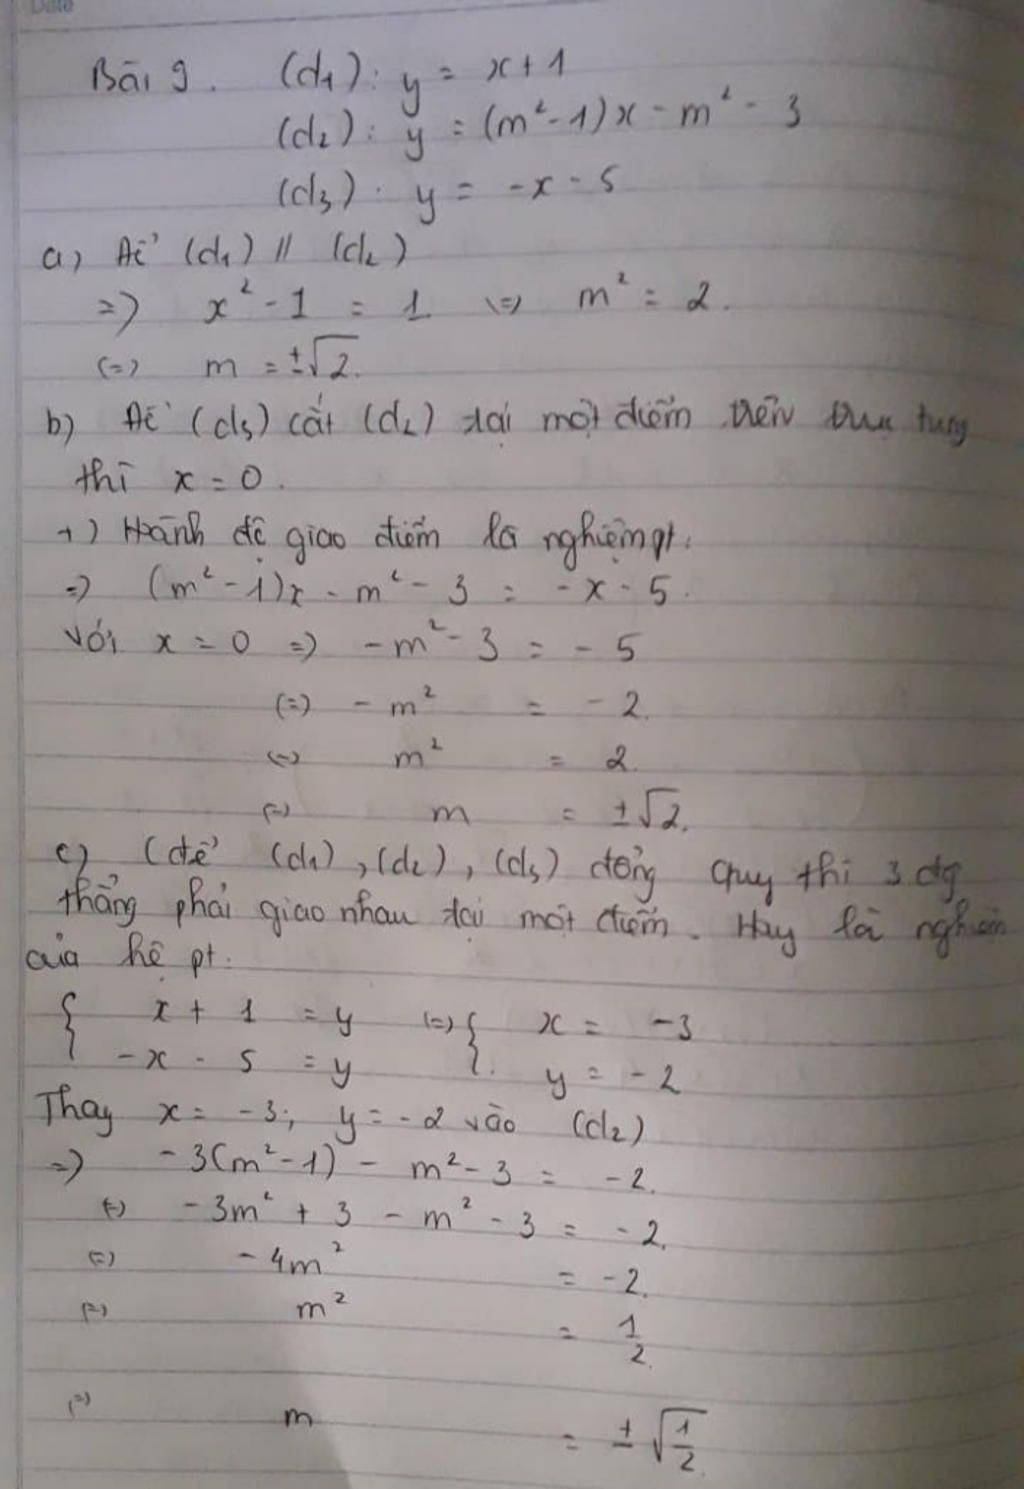 Date
Bài 9. (d₁): y = x + 1
(d₂): y = (m² - 1)x - m² - 3
(d₃): y = -x - 5
a) Để (d₁) // (d₂)
=> x² - 1 = 1 <=> m² = 2.
(=) m = ±√2.
b) Để (d₃) cắt (d₂) tại một điểm trên trục tung
thì x = 0.
+) Hoành độ giao điểm là nghiệm pt:
=> (m² - 1)x - m² - 3 = -x - 5.
Với x = 0 => -m² - 3 = -5
(=) - m² = -2.
(=) m² = 2
(=) m = ±√2.
c) (để (d₁), (d₂), (d₃) đồng quy thì 3 đg
thẳng phải giao nhau tại một điểm. Hay là nghiệm
của hệ pt:
{ x + 1 = y (=) { x = -3
-x - 5 = y y = -2
Thay x = -3; y = -2 vào (d₂)
=> -3(m² - 1) - m² - 3 = -2.
(=) -3m² + 3 - m² - 3 = -2.
(=) -4m² = -2.
(=) m² = 1/2.
(=) m = ±√1/2.